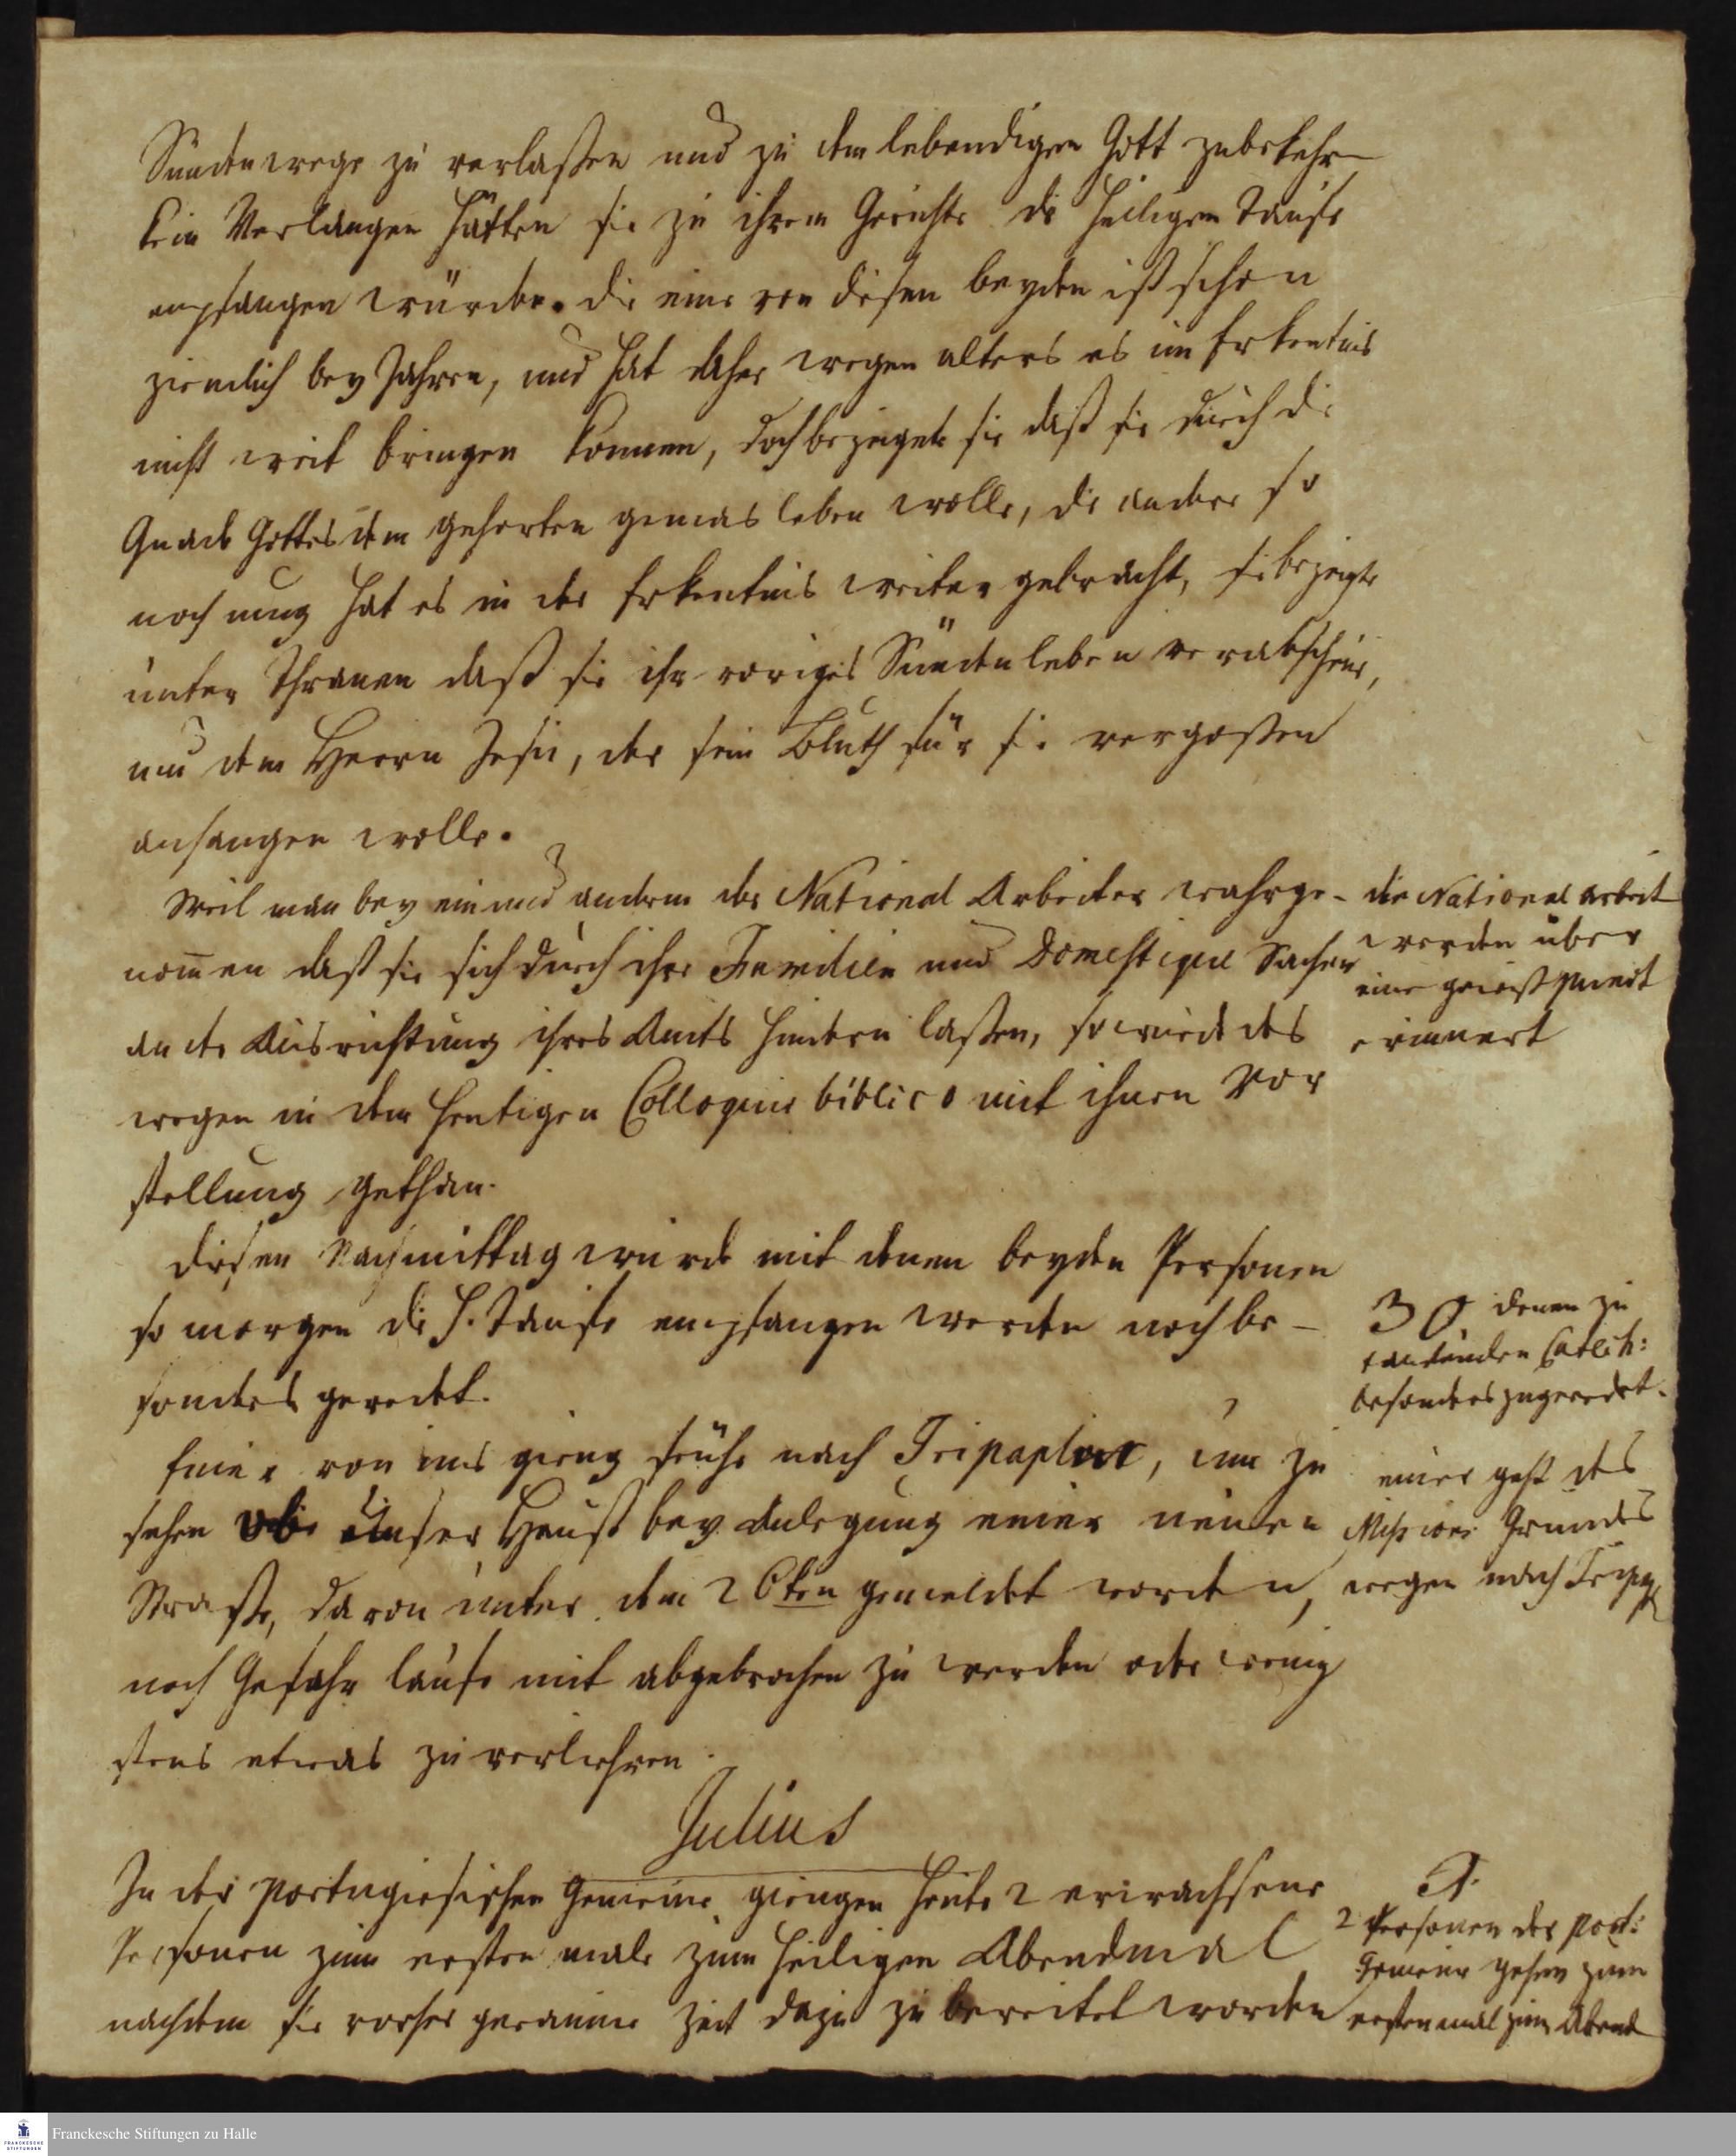 Sündenwege zu verlaßen und zu dem lebendigen Gott zubekehr
kein Verlangen hätten sie zu ihrem Gerichte die heiligen Taufe
empfangen würden. die eine von diesen beyden ist schon
ziemlich bey Jahren, und hat daher wegen alters es im Erkentnis
nicht weit bringen konnen, doch bezeigete sie daß sie durch die
Gnade Gottes dem gehorten gemäs leben wolle, die andere so
noch jung hat es in der Erkentnis weiter gebracht, sie bezeigte
unter Thränen daß sie ihr voriges Sündenleben verabscheue,
und dem Herrn Jesu, der sein Bluth für sie vergoßen
anhangen wolle.
Weil man bey ein und andern der National Arbeiter wahrge-
nom̄en daß sie sich durch ihre Familien und Domestique Sachen
an der Ausrichtung ihres Amts hindern laßen, so wurde des
wegen in dem heutigen Colloquio biblico mit ihnen Vor
stellung gethan.
die National Arbeit
werden über
eine gewiß punct
erinnert
diesen Nachmittag wurde mit denen beyden Personen
so morgen die H. Taufe empfangen werden noch be-
sonders geredet.
30 denen zu
taufenden Catech:
besonders zugeredet.
Einer von uns gieng frühe nach Tripaplur, um zu
sehen ob unser Hauß bey Anlegung einer neuen
Straße, davon unter dem 26ten gemeldet worden,
noch Gefahr laufe mit abgebrochen zu werden oder wenig
stens etwas zu verliehren.
einer geht des
Missions Grundes
wegen nach Tripp
Julius
In der portugiesischen Gemeine giengen heute 2 erwachsene
Personen zum ersten male zum heiligen Abendmal
nachdem sie vorher geraume Zeit dazu zu bereitet worden
1.
2 Personen der Port:
Gemeine gehen zum
ersten mal zum Abend
Franckesche Stiftungen zu Halle